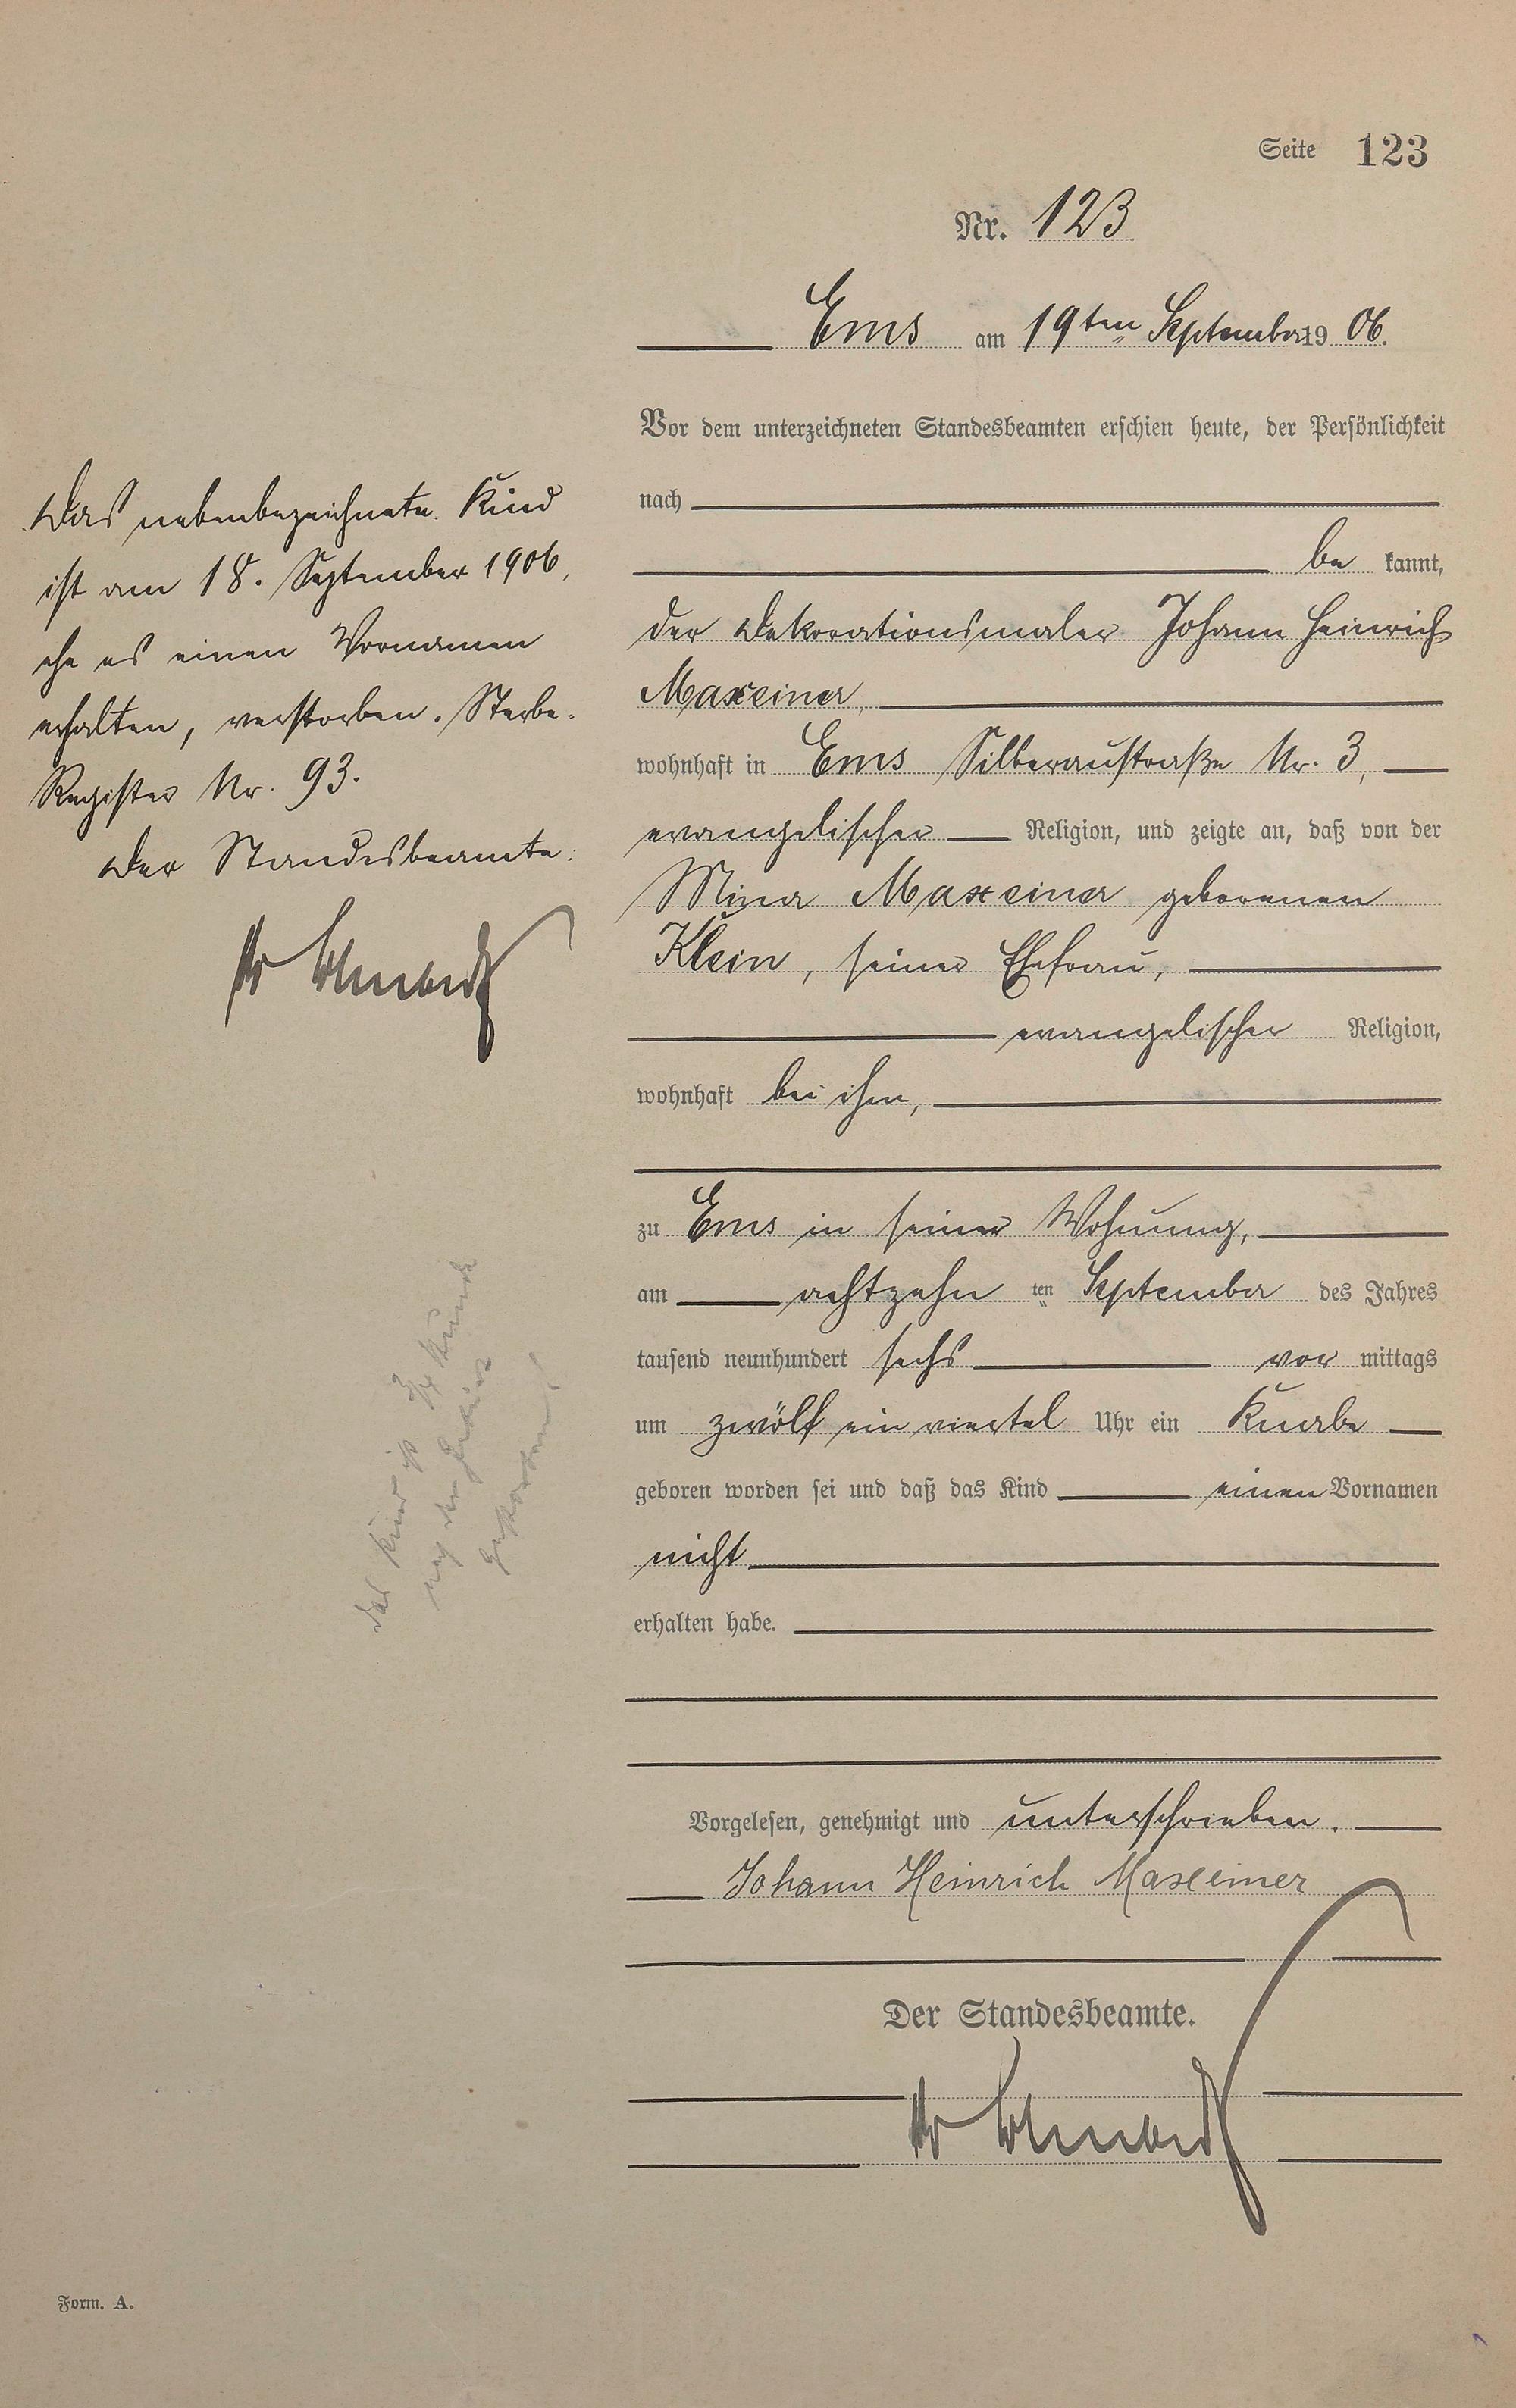 Seite 123
Nr. 123
Ems am 19ten September 1906.
Vor dem unterzeichneten Standesbeamten erschien heute, der Persönlichkeit
nach
be kannt,
der Dekorationsmaler Johann Heinrich
Maxeiner,
wohnhaft in Ems Silberaustraße Nr. 3,
evangelischer Religion, und zeigte an, daß von der
Mina Maxeiner geborenen
Klein, seiner Ehefrau,
evangelischer Religion,
wohnhaft bei ihm,
zu Ems in seiner Wohnung,
am achtzehn ten September des Jahres
tausend neunhundert sechs vor mittags
um zwölf ein viertel Uhr ein Knabe
geboren worden sei und daß das Kind einen Vornamen
nicht
erhalten habe.
Vorgelesen, genehmigt und unterschrieben.
Johann Heinrich Maxeiner
Der Standesbeamte.
Das nebenbezeichnete Kind
ist am 18. September 1906,
ehe es einen Vornamen
erhalten, verstorben. Sterbe-
Register Nr. 93.
Der Standesbeamte:
Das Kind ist 3/4 Stunde
nach der Geburt
gestorben!
Form. A.